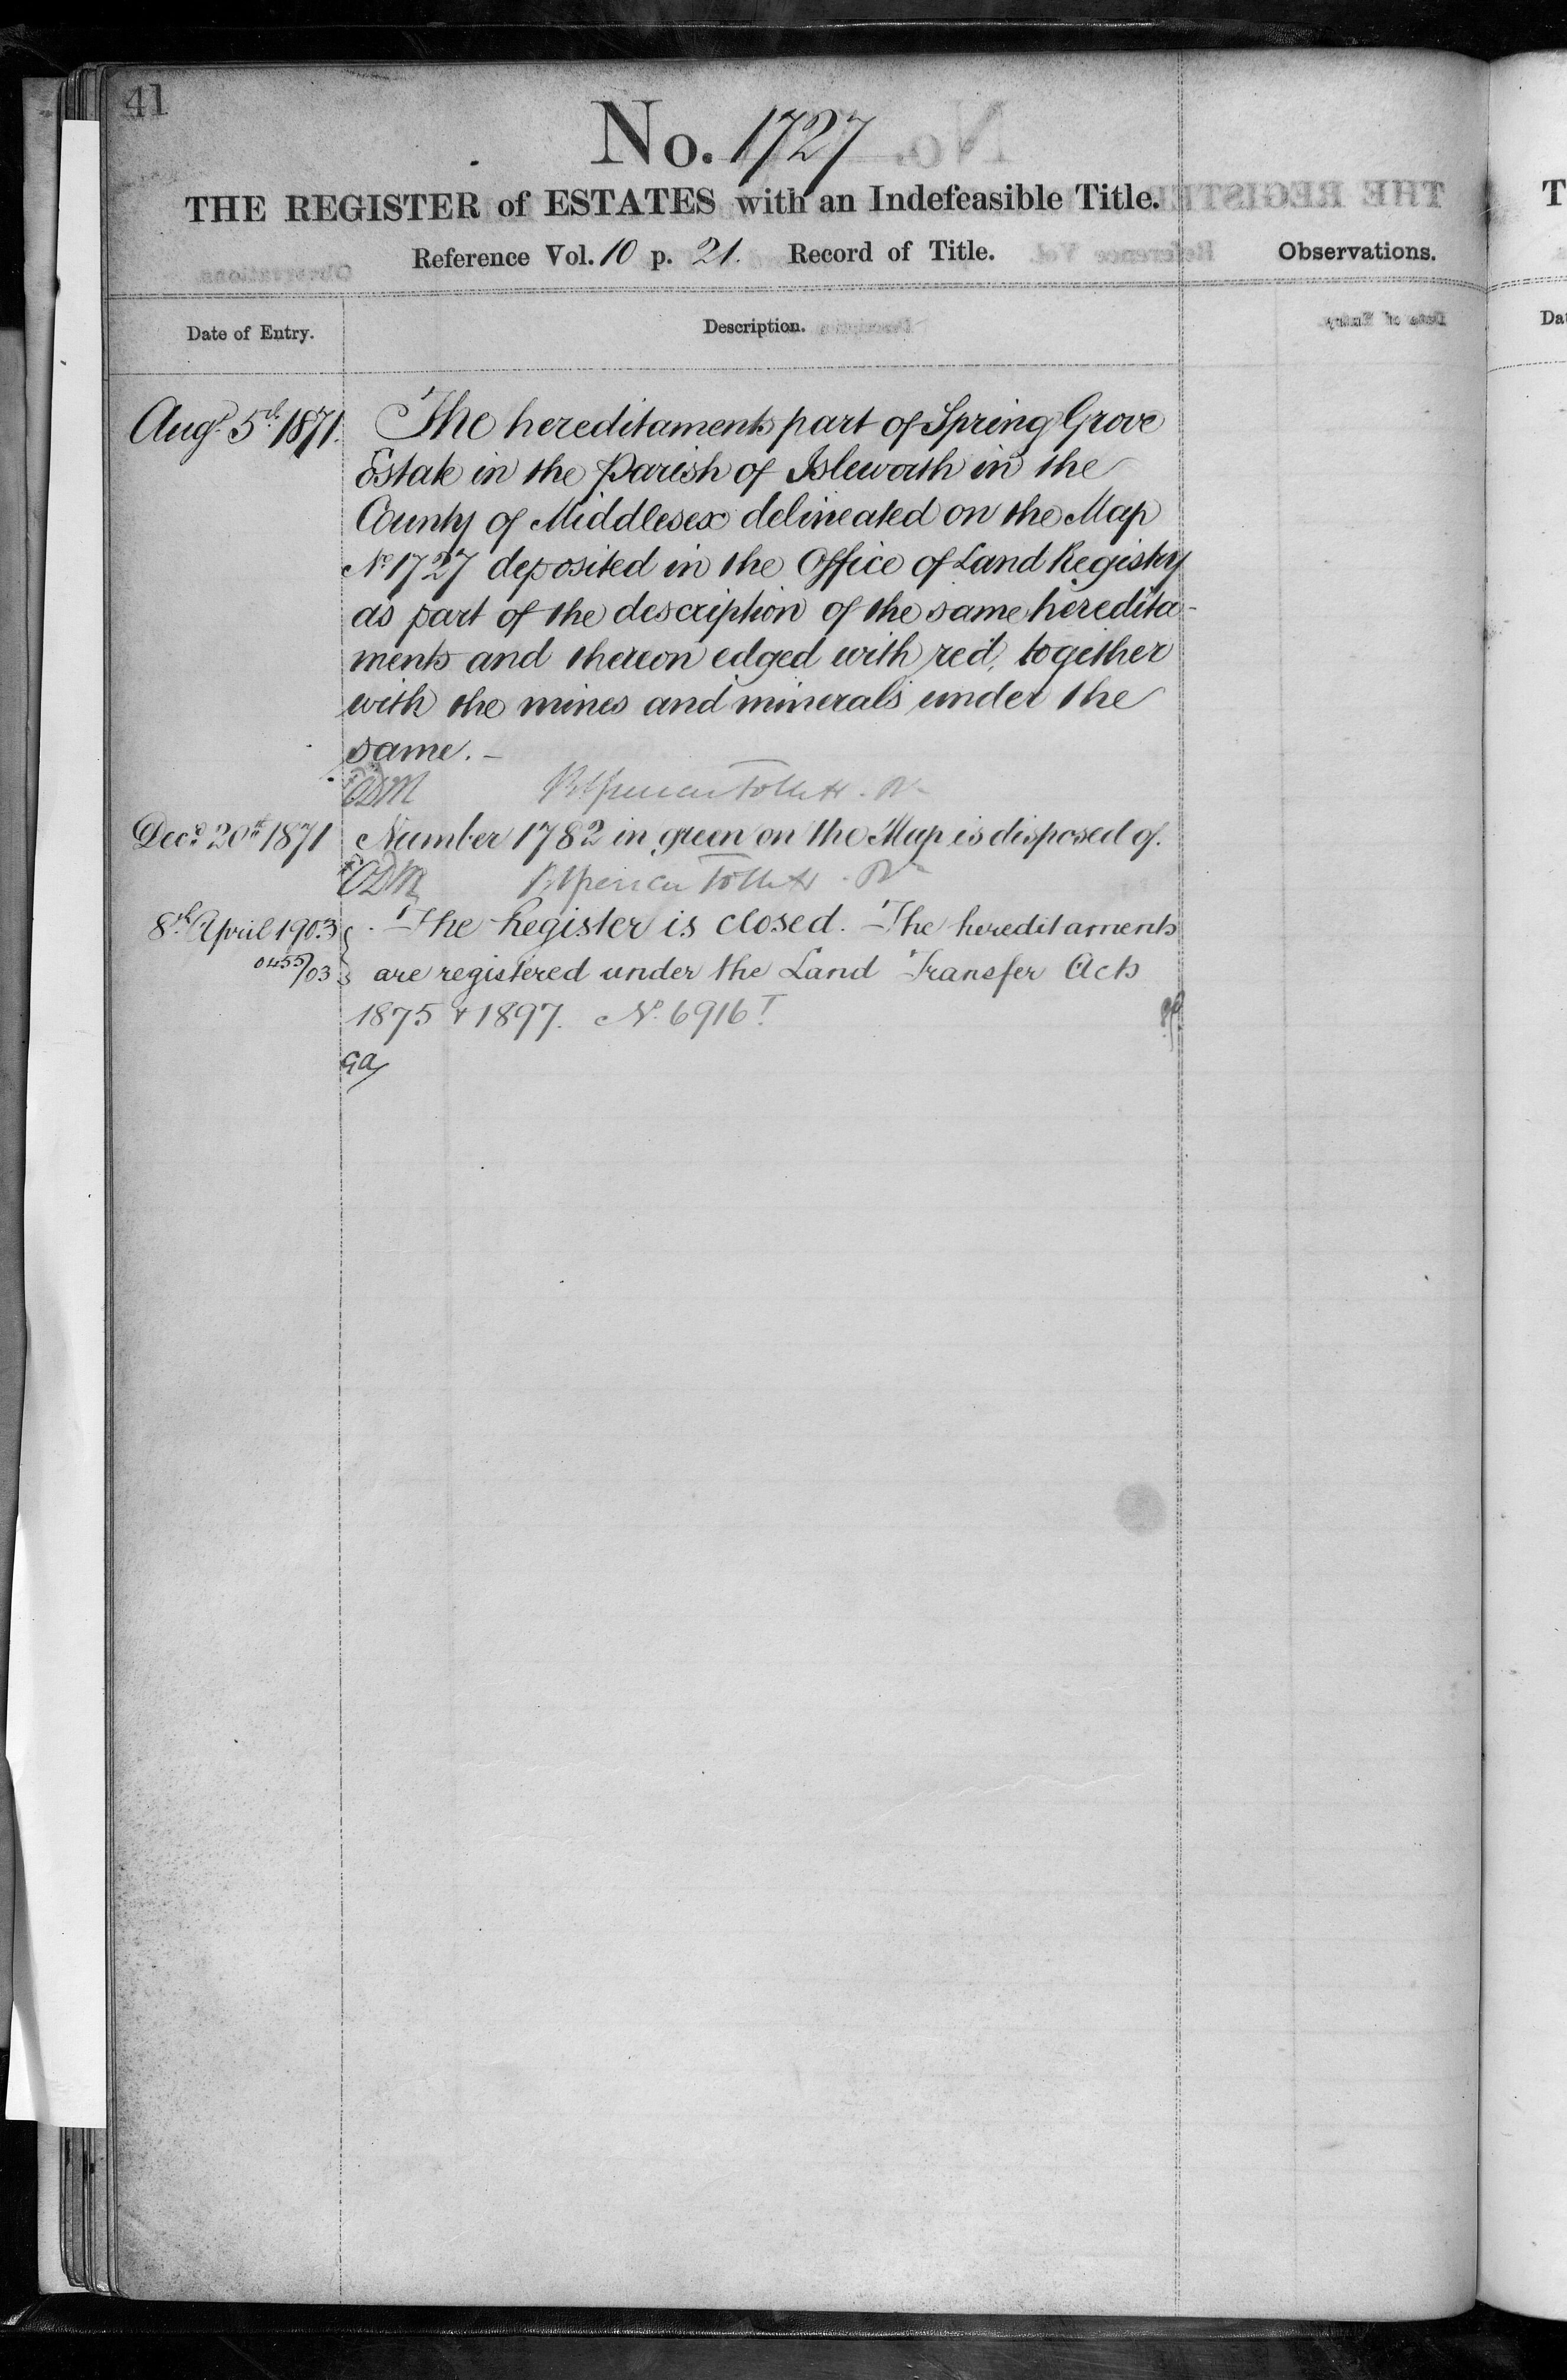 41
No. 1727
THE REGISTER of ESTATES with an Indefeasible Title.
Reference Vol. 10 p. 21. Record of Title.
Observations.
Date of Entry.
Description.
Augt 5th 1871. The hereditaments part of Spring Grove
Estate in the Parish of Isleworth in the
County of Middlesex delineated on the Map
No 1727 deposited in the Office of Land Registry
as part of the description of the same heredita-
ments and thereon edged with red, together
with the mines and minerals under the
same. -
ODM
Decr 20th 1871 Number 1782 in green on the Map is disposed of.
ODM
8th April 1903 The Register is closed. The hereditaments
0455/03 are registered under the Land Transfer Acts
1875 & 1897. No 6916 T.
GA